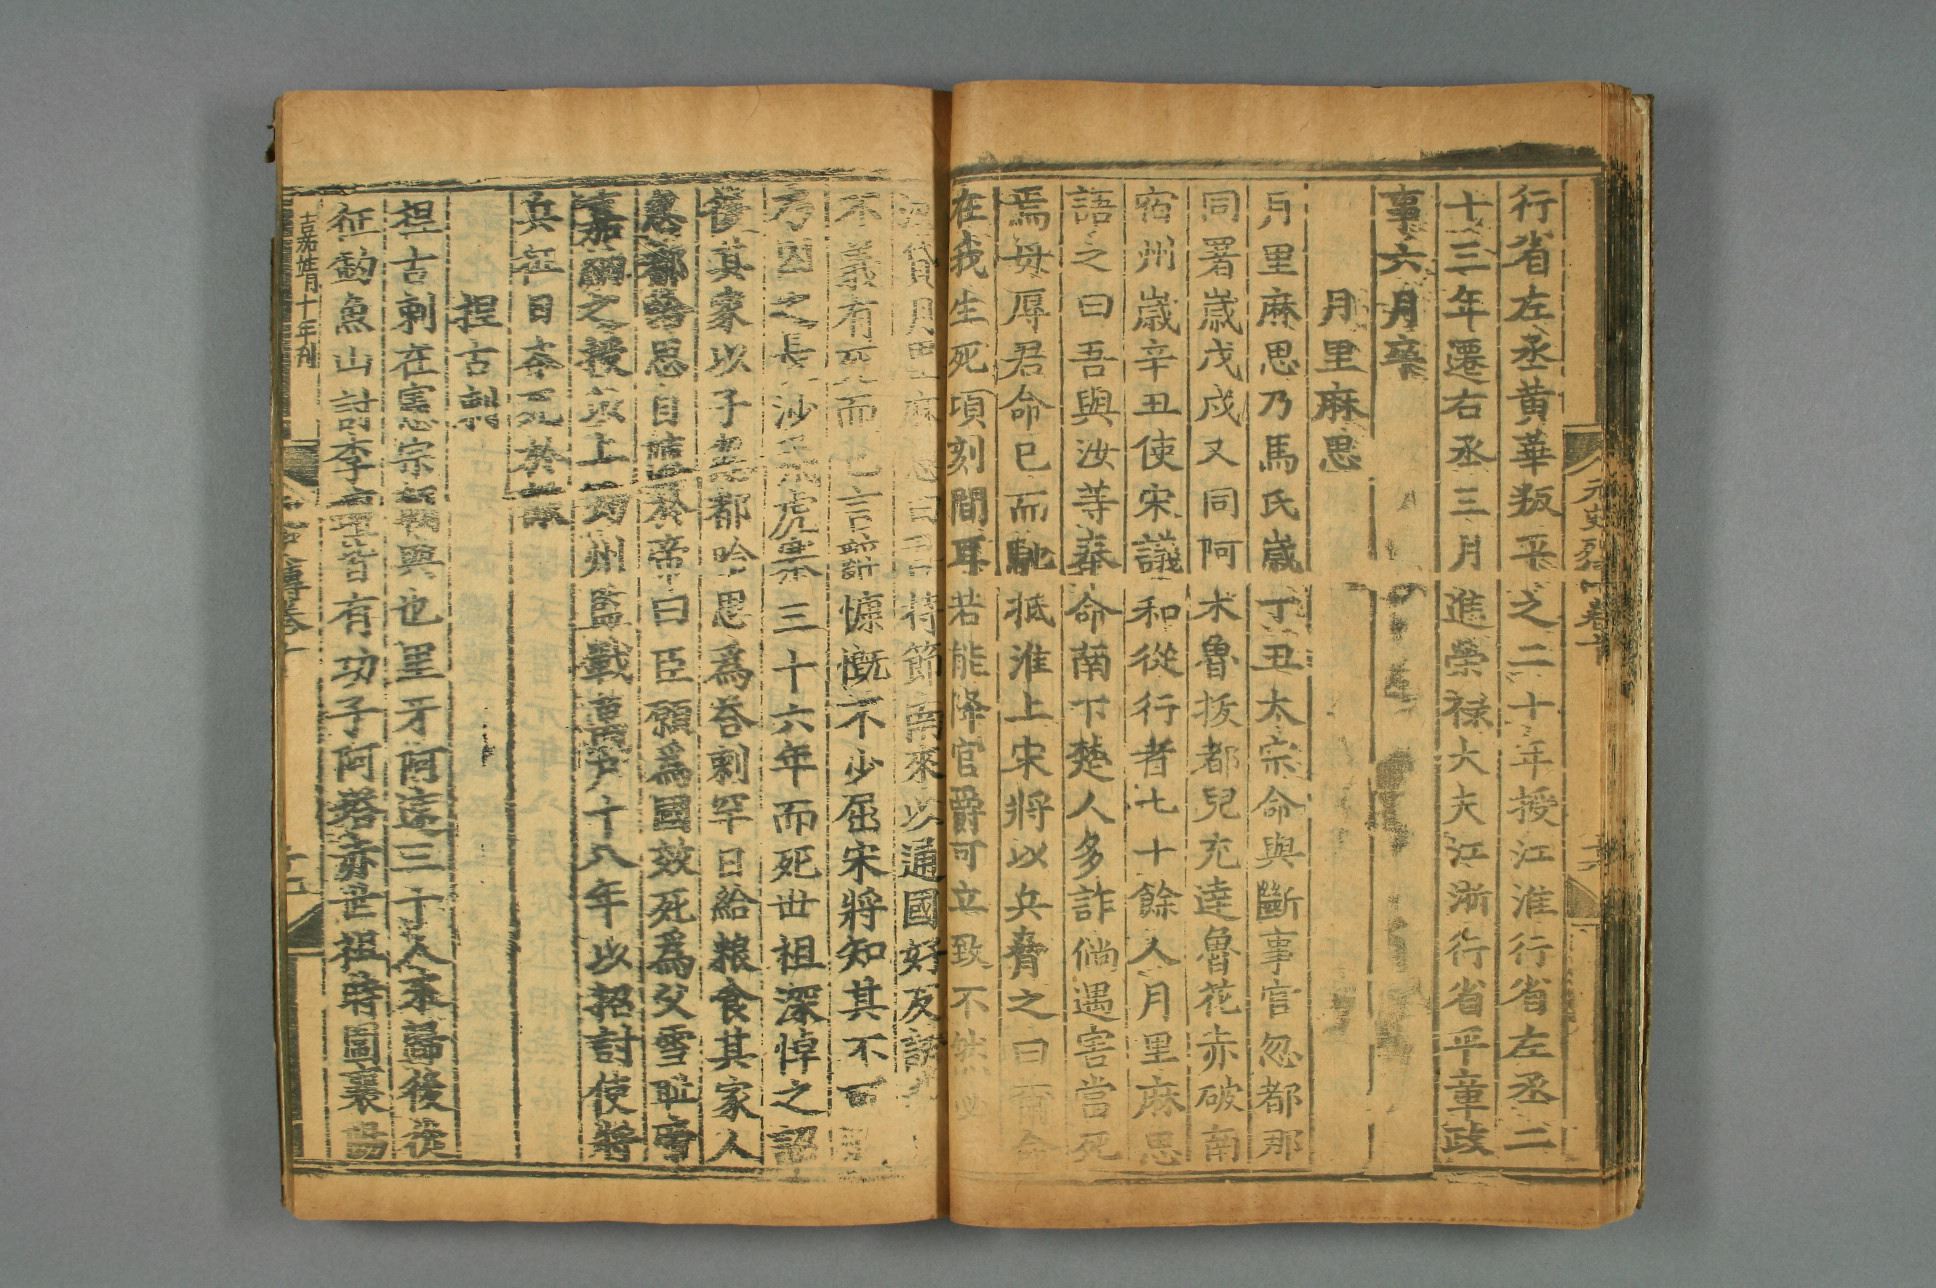 行省左丞黃華叛平之二十年授江淮行省左丞二
十三年遷右丞三月進榮祿大夫江浙行省平章政
事六月卒
月里麻思
月里麻思乃馬氏歲丁丑太宗命與斷事官忽都那
同署歲戊戌又同阿朮魯拔都兒充達魯花赤破南
宿州歲辛丑使宋議和從行者七十餘人月里麻思
語之曰吾與汝等奉命南下楚人多詐倘遇害當死
焉毋辱君命已而馳抵淮上宋將以兵脅之曰爾命
在我生死頃刻間耳若能降官爵可立致不然必
月里麻思曰吾持節南來以通國好反
不義有死而已言辭慷慨不少屈宋將知其不可
乃囚之長沙飛虎寨三十六年而死世祖深悼之詔
復其家以子忽都哈思爲荅剌罕日給粮食其家人
忽都哈思自請於帝曰臣願爲國效死爲父雪耻帝
嘉納之授以上均州監戰萬戶十八年以招討使將
兵征日本死於敵
捏古剌
捏古剌在憲宗朝與也里牙阿速三十人來歸後從
征釣魚山討李璮皆有功子阿荅赤世祖時圍襄陽
元史列傳卷十
十六
嘉靖十年刊
傳卷十